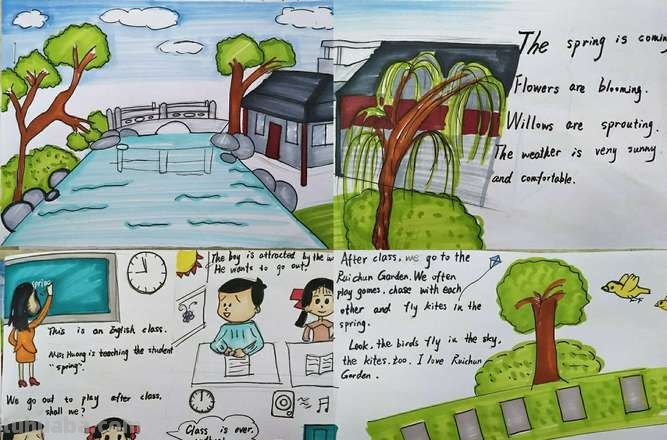 The spring is coming
Flowers are blooming.
Willows are sprouting.
The weather is very sunny
and comfortable.
spring
This is an English class.
Miss Huang is teaching the student
"spring".
We go out to play after class,
shall we?
The boy is attracted by the
He wants to go out.
Class is over.
After class, we go to the
Ruichun Garden. We often
play games, chase with each
other and fly kites in the
spring.
Look, the birds fly in the sky,
the kites, too. I love Ruichun
Garden.